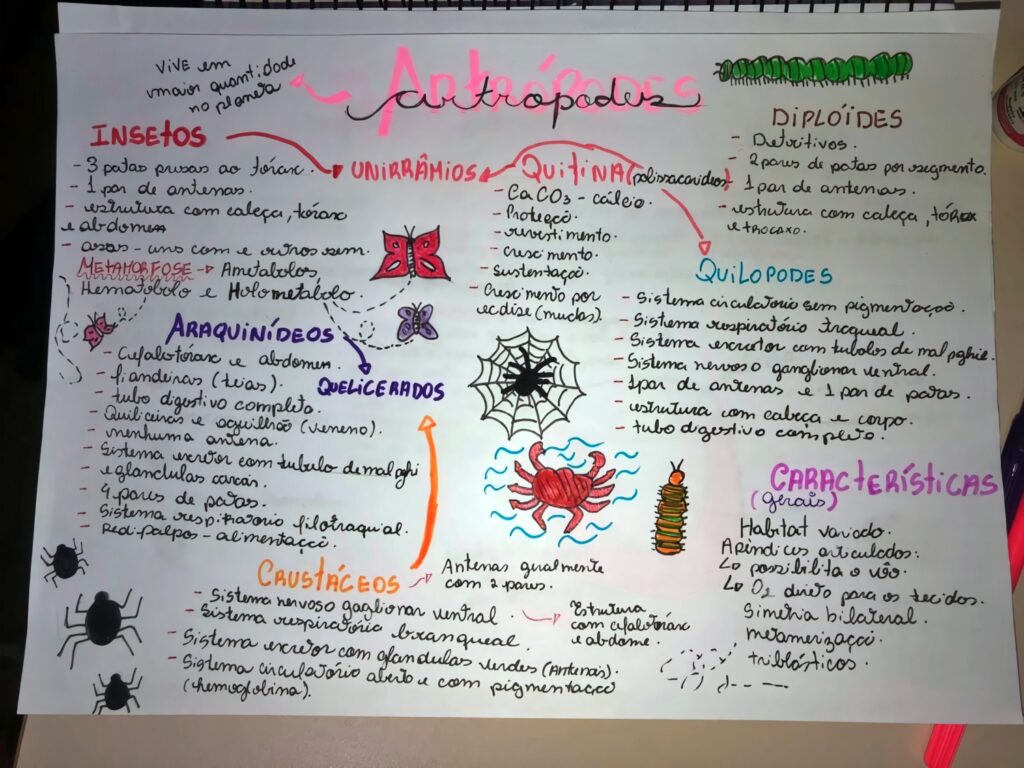 Artrópodes
artropodes
ViVE em
maior quantidade
no planeta
INSETOS
- 3 patas presas ao tórax.
- 1 par de antenas.
- estrutura com cabeça, tórax
e abdomen
- asas - uns com e outros sem.
METAMORFOSE → Ametabolos
Hematobolo e Holometabolo.
UNIRRÂMIOS
QUITINA (polissacarideos)
CaCO3 - cálcio.
- Proteção.
- revestimento.
- crescimento.
- Sustentação.
- Crescimento por
ecdise (mudas).
DIPLÓIDES
- Detritivos.
- 2 pares de patas por segmento.
- 1 par de antenas.
- estrutura com cabeça, tórax
e trocaxo.
QUILOPODES
- Sistema circulatorio sem pigmentação.
- Sistema respiratório traqueal.
- Sistema excretor com tubolos de malpghie.
- Sistema nervoso ganglionar ventral.
- 1 par de antenas e 1 par de patas.
- estrutura com cabeça e corpo.
- tubo digestivo completo.
ARAQUINÍDEOS
- Cefalotórax e abdomen.
- fiandeiras (teias).
- tubo digestivo completo.
- Quiliceiras e aguilhão (veneno).
- nenhuma antena.
- Sistema excretor com tubulo de malpghi
e glandulas coxais.
- 4 pares de patas.
- Sistema respiratorio filotraquial.
- Pedipalpos - alimentação.
QUELICERADOS
CRUSTÁCEOS → Antenas geralmente
com 2 pares.
- Sistema nervoso gaglionar ventral.
→ Estrutura
com cefalotórax
e abdome.
- Sistema respiratória branqueal.
- Sistema excretor com glandulas verdes (Antenais).
- Sistema circulatório aberto e com pigmentação
(hemoglobina).
CARACTERÍSTICAS
(gerais)
Habitat variado.
Apêndices articulados.
↳ possibilita o vôo.
↳ O2 direto para os tecidos.
Simetria bilateral.
metamerização.
triblásticos.